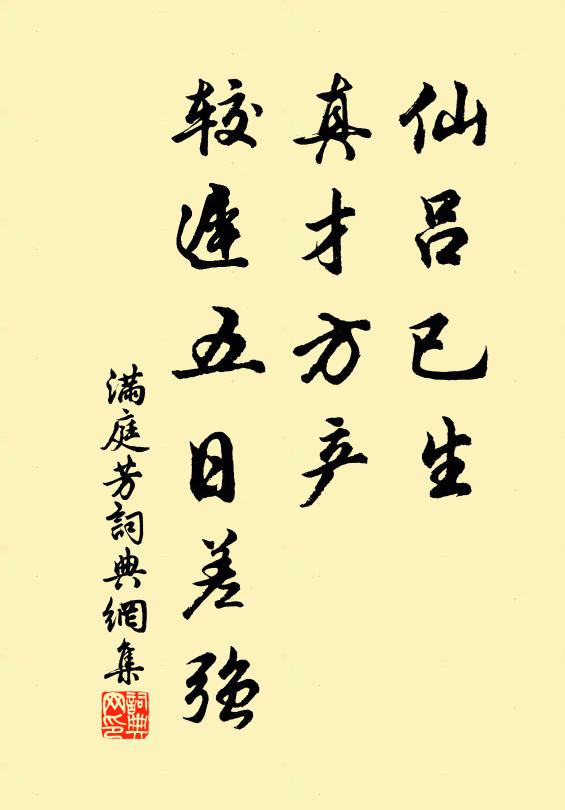 仙吕已生
真才方产
较迟五日差强
满庭芳詞典網集
詞典
网印